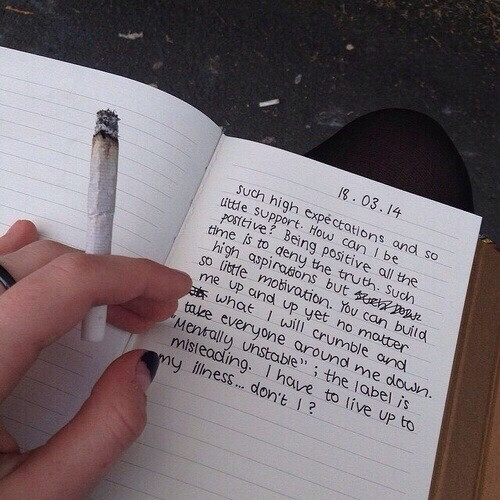 18.03.14
such high expectations and so
little support. How can I be
positive? Being positive all the
time is to deny the truth. Such
high aspirations but
so little motivation. You can build
me up and up yet no matter
what I will crumble and
take everyone around me down.
"Mentally unstable"; the label is
misleading. I have to live up to
my illness... don't I?